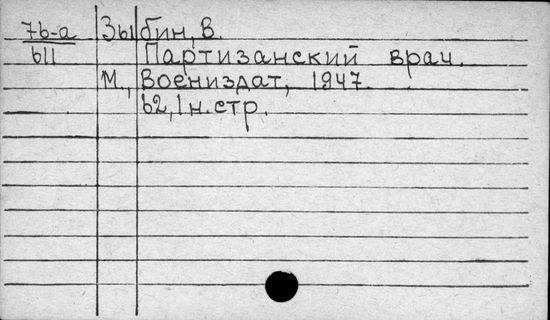 7б-а Зыбин, В.
611 Партизанский врач.
М., Воениздат, 1947.
62, 1 н. стр.